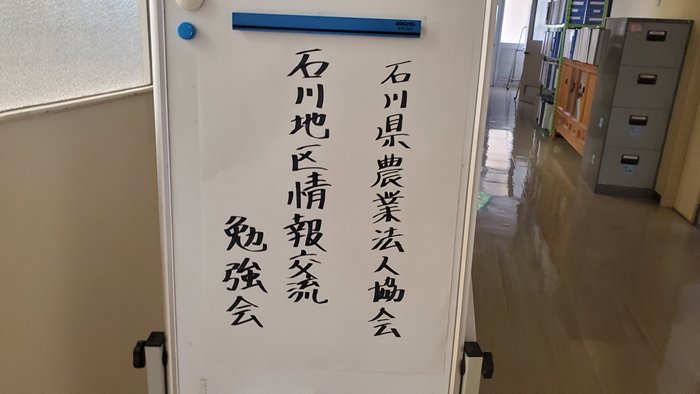 石川県農業法人協会
石川地区情報交流
勉強会
KOKUYO